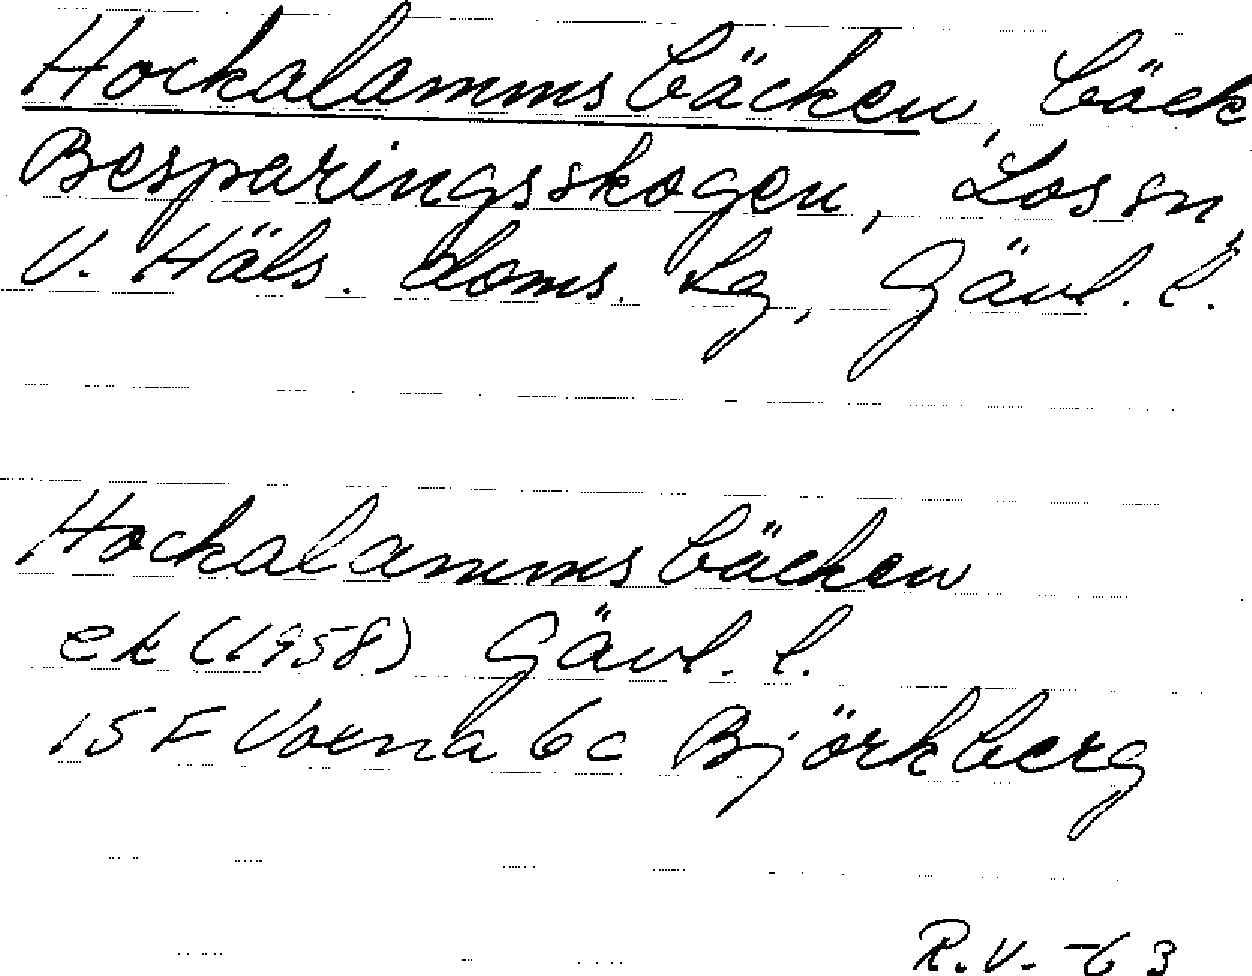 Hockalammsbäcken, bäck
Besparingsskogen, Los sn,
V. Häls. doms. lg, Gävl. l.
Hockalammsbäcken
ek (1958) Gävl. l.
15 F Voxna 6c Björkberg
R.V. -63